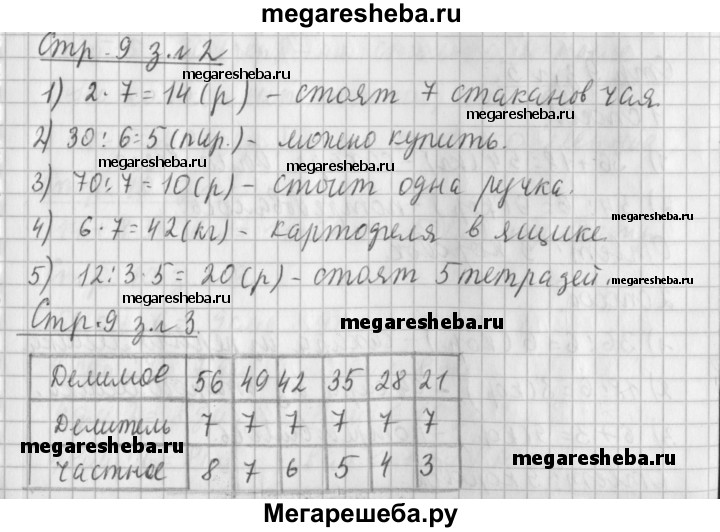 megaresheba.ru
Стр. 9 з. № 2
megaresheba.ru
1) 2·7=14(р) - стоят 7 стаканов чая.
2) 30:6=5(пир.) - можно купить.
megaresheba.ru
3) 70:7=10(р) - стоит одна ручка.
megaresheba.ru
4) 6·7=42(кг) - картофеля в ящике
megaresheba.ru
5) 12:3·5=20(р) - стоят 5 тетрадей.
megaresheba.ru
megaresheba.ru
Стр. 9 з. № 3.
megaresheba.ru
megaresheba.ru
Делимое 56 49 42 35 28 21
Делитель 7 7 7 7 7 7
megaresheba.ru
Частное 8 7 6 5 4 3
megaresheba.ru
Мегарешеба.ру